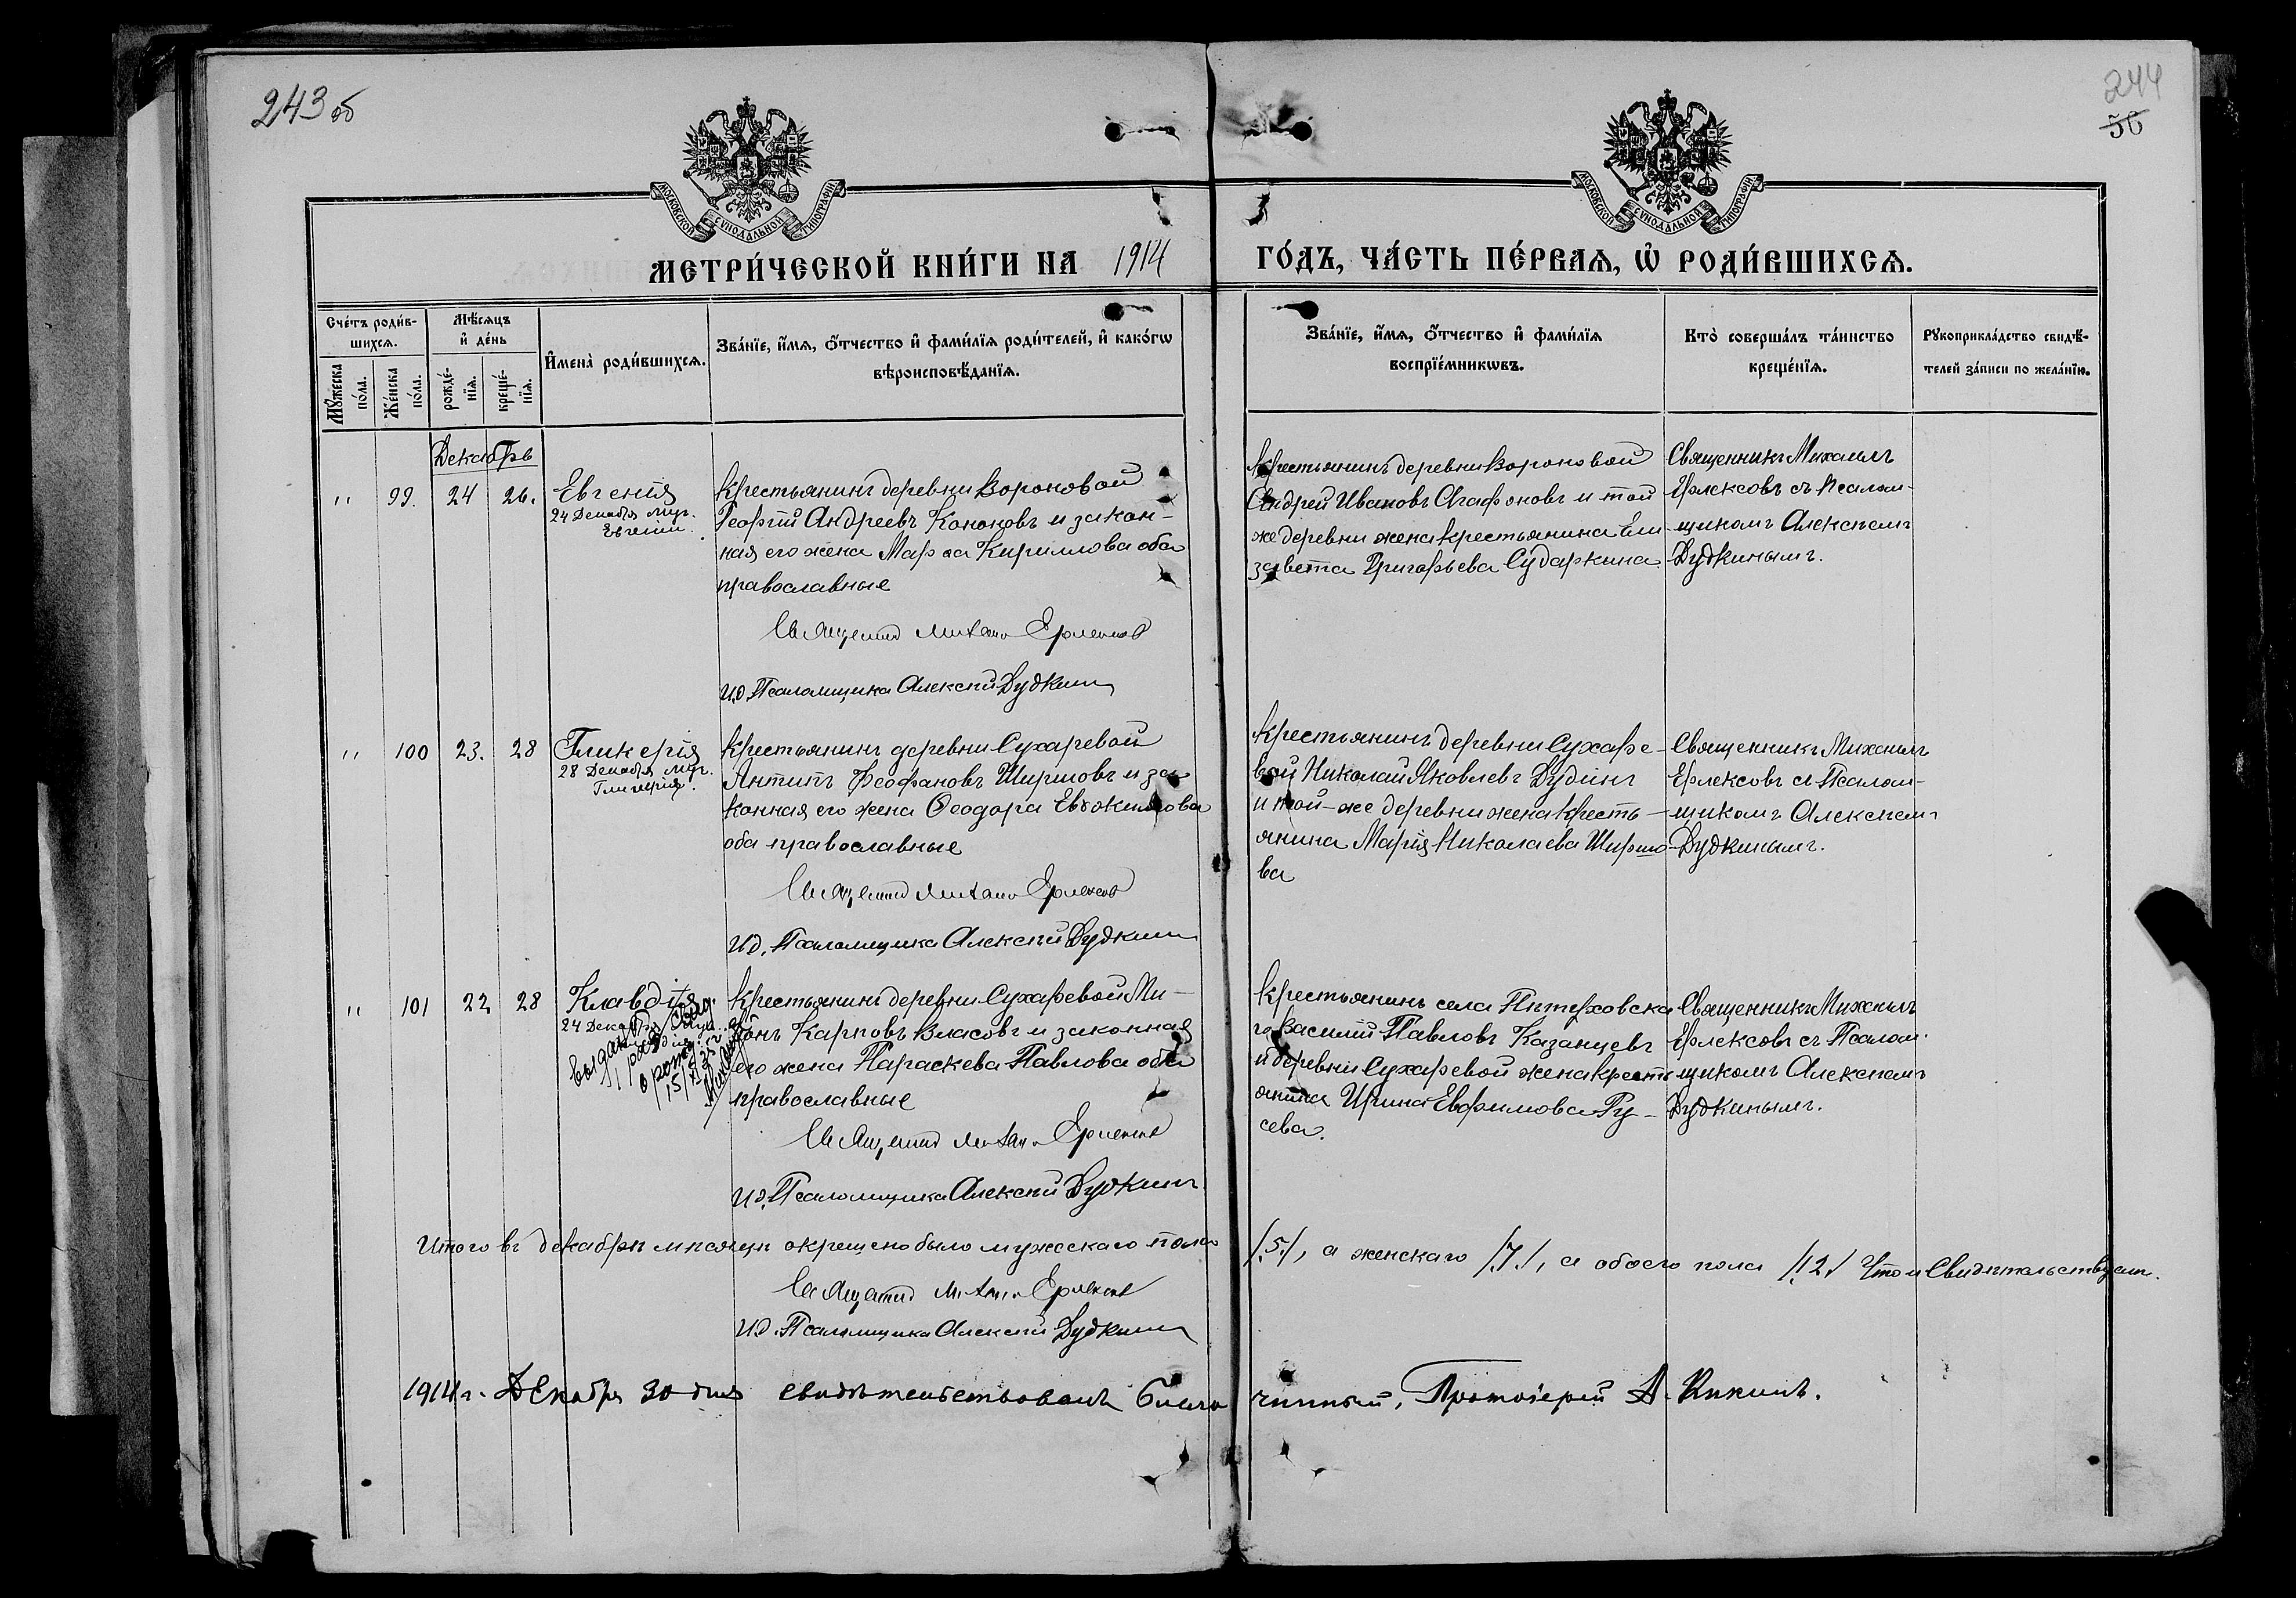 243 об
244
56
МОСКОВСКОЙ СУНОДАЛЬНОЙ ТИПОГРАФІИ
МОСКОВСКОЙ СУНОДАЛЬНОЙ ТИПОГРАФІИ
МЕТРИ́ЧЕСКОЙ КНИ́ГИ НА 1914 ГО́ДЪ, ЧА́СТЬ ПЕ́РВАѦ, Ѽ РОДИ́ВШИХСѦ.
Сче́тъ роди́в-
шихсѧ.
Мꙋ́жеска
по́ла.
Же́нска
по́ла.
Мѣ́сѧцъ
и҆ де́нь
рожде́-
нїѧ.
креще́-
нїѧ.
И҆мена̀ роди́вшихсѧ.
Зва́нїе, и҆́мѧ, ѻ҆́тчество и҆ фами́лїѧ роди́телей, и҆ како́гѡ
вѣроисповѣ́данїѧ.
Зва́нїе, и҆́мѧ, ѻ҆́тчество и҆ фами́лїѧ
воспрїе́мникѡвъ.
Кто̀ соверша́лъ та́инство
креще́нїѧ.
Рꙋкоприкла́дство свидѣ́-
телей за́писи по жела́нїю.
Декабрь
" 99. 24 26.
Евгенія
24 Декабря муч.
Евгеніи.
Крестьянинъ деревни Вороновой
Георгій Андреевъ Кононовъ и закон-
ная его жена Марѳа Кириллова оба
православные
Священник Михаил Ерлексов
И.д. Псаломщика Алексѣй Дудкинъ
Крестьянинъ деревни Вороновой
Андрей Ивановъ Агафоновъ и той
же деревни жена крестьянина Ели-
завета Григорьева Сударкина
Священникъ Михаилъ
Ерлексовъ съ Псалом-
щикомъ Алексѣемъ
Дудкинымъ.
" 100 23. 28
Гликерія
28 Декабря муч.
Гликерія.
Крестьянинъ деревни Сухаревой
Антипъ Феофановъ Ширшовъ и за-
конная его жена Ѳеодора Евдокимова
оба православные
Священник Михаил Ерлексов
И.д. Псаломщика Алексѣй Дудкинъ
Крестьянинъ деревни Сухаре-
вой Николай Яковлевъ Дудинъ
и той-же деревни жена кресть-
янина Марія Николаева Ширшо-
ва
Священникъ Михаилъ
Ерлексовъ съ Псалом-
щикомъ Алексѣемъ
Дудкинымъ.
" 101 22 28
Клавдія
24 Декабря
Выдано
о рожд.
15/XI 35 г.
Крестьянинъ деревни Сухаревой Ми-
ронъ Карповъ Власовъ и законная
его жена Параскева Павлова оба
православные
Священник Михаил Ерлексов
И.д. Псаломщика Алексѣй Дудкинъ
Крестьянинъ села Пѣтуховска-
го Василій Павловъ Казанцевъ
и деревни Сухаревой жена кресть-
янина Ирина Евфимова Гу-
сева.
Священникъ Михаилъ
Ерлексовъ съ Псалом-
щикомъ Алексѣемъ
Дудкинымъ.
Итого въ декабрѣ мѣсяцѣ окрещено было мужескаго пола /5/, а женскаго /7/, а обоего пола /12/ Что и свидѣтельствуемъ.
Священник Михаил Ерлексов
И.д. Псаломщика Алексѣй Дудкинъ
1914 г. Декабря 30 дня свидѣтельствовалъ Благочинный, Протоіерей А.